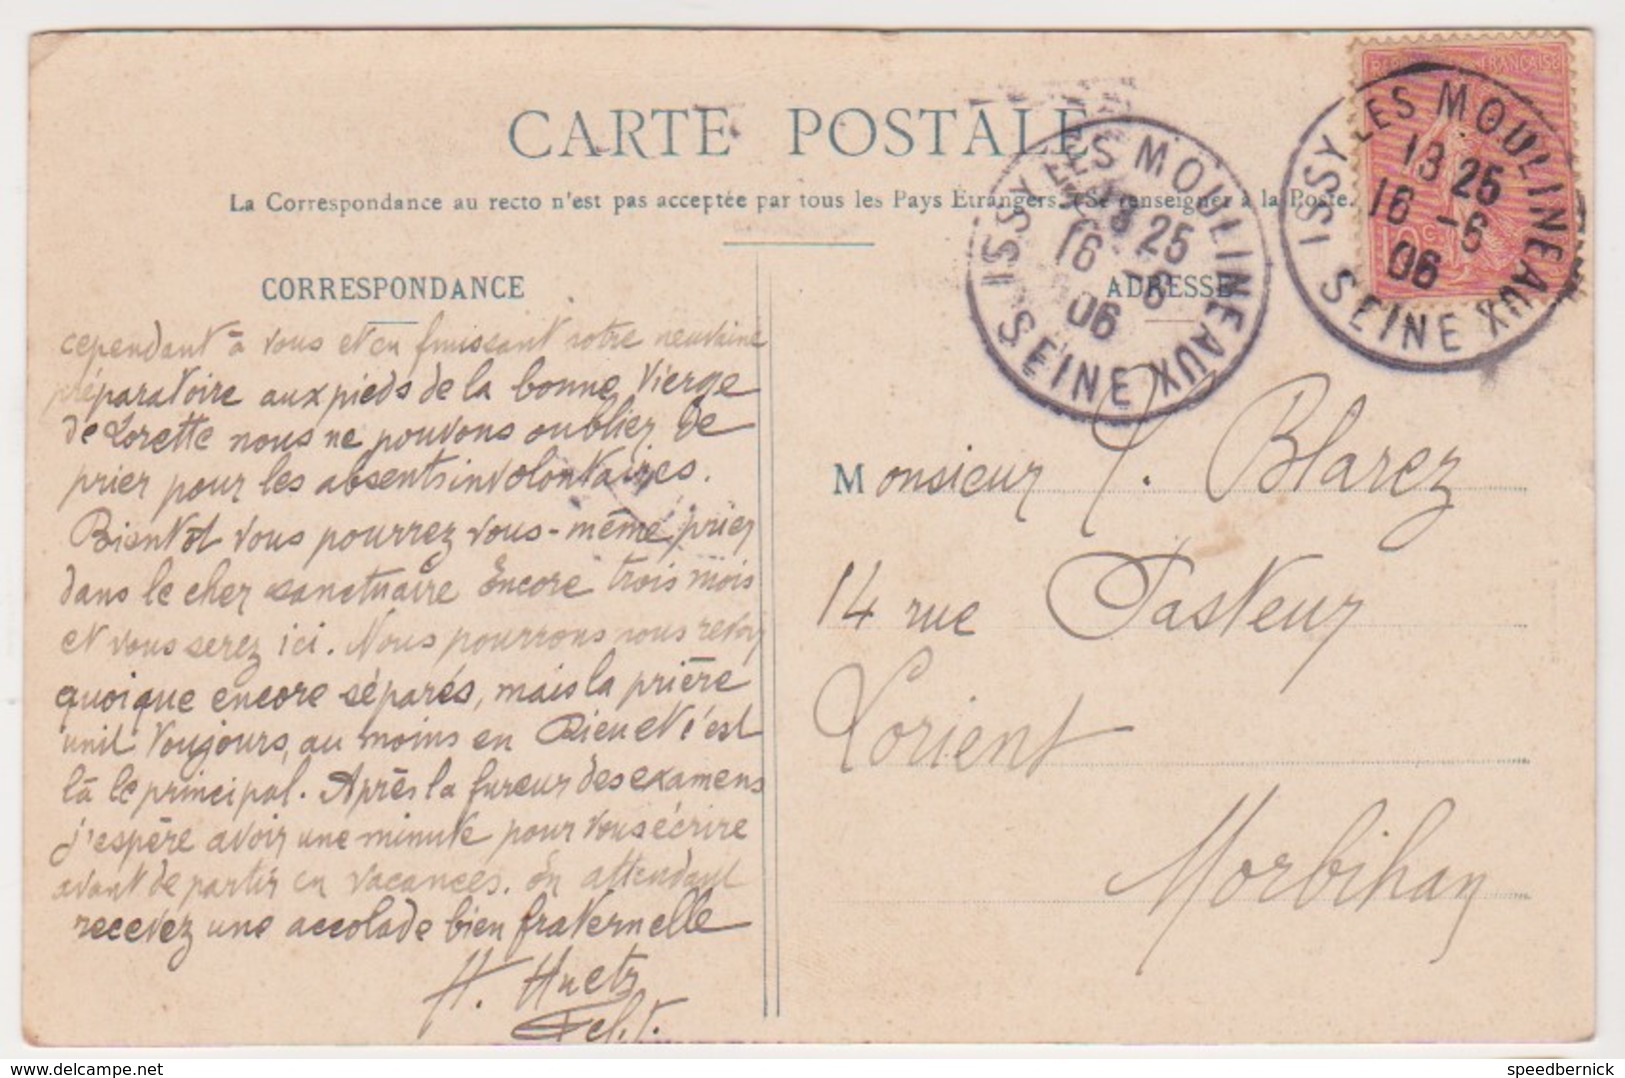 CARTE POSTALE
La Correspondance au recto n'est pas acceptée par tous les Pays Etrangers. (Se renseigner à la Poste.
CORRESPONDANCE
cependant à vous et en finissant notre neuvaine
préparatoire aux pieds de la bonne Vierge
de Lorette nous ne pouvons oublier de
prier pour les absents involontaires.
Bientôt vous pourrez vous-même prier
dans le cher sanctuaire Encore trois mois
et vous serez ici. Nous pourrons nous revoir
quoique encore séparés, mais la prière
unit toujours, au moins en Dieu et c'est
là le principal. Après la fureur des examens
j'espère avoir une minute pour vous écrire
avant de partir en vacances. En attendant
recevez une accolade bien fraternelle
H. Huet
ADRESSE
Monsieur J. Blarez
14 rue Pasteur
Lorient
Morbihan
ISSY LES MOULINEAUX
13 25
16 -6
06
SEINE
ISSY LES MOULINEAUX
13 25
16 -6
06
SEINE
FRANÇAISE
10c
delcampe.net
speedbernick